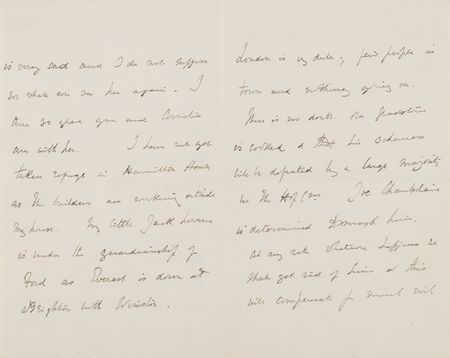 is very sad and I do not suppose
we shall ever see her again. I
am so glad you and Cornelia
are with her. I have not got
taken refuge in Hamilton House
as the builders are working outside
my house. My little Jack
is under the guardianship of
as Everest is down at
Brighton with Winston.
London is very dull; few people in
town and nothing going on.
There is no doubt old Gladstone
is cooked & that his schemes
will be defeated by a large majority
in the H of Cns. Joe Chamberlain
is determined to smash him.
At any rate whatever happens we
shall get rid of him & this
will compensate for much evil.